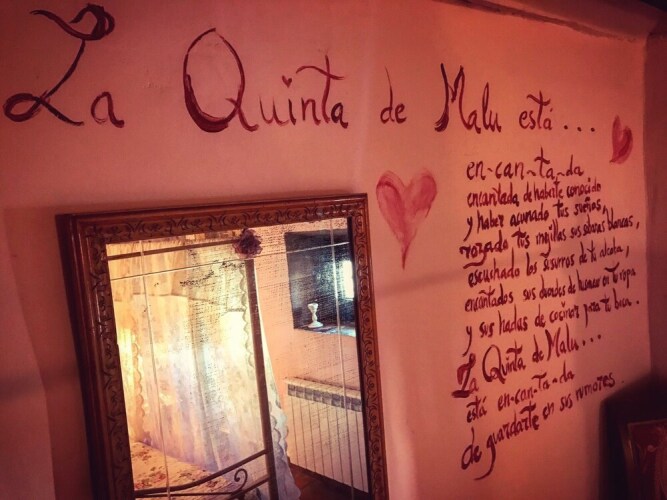 La Quinta de Malu está...
en-can-ta-da
encantada de haberte conocido
y haber acunado tus sueños,
rozado tus mejillas sus sábanas blancas,
escuchado los susurros de tu alcoba,
encantados sus duendes de husmear en tu ropa
y sus hadas de cocinar para tu boca.
La Quinta de Malu...
está en-can-ta-da
de guardarte en sus rumores